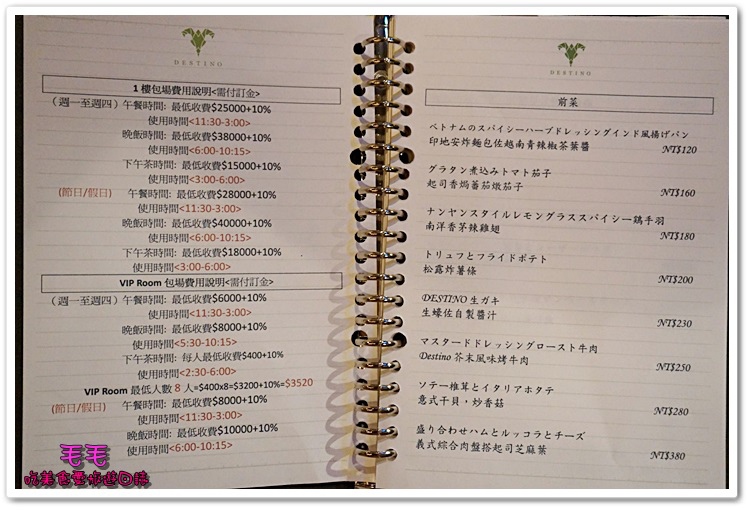 DESTINO
1 樓包場費用說明<需付訂金>
(週一至週四) 午餐時間: 最低收費$25000+10%
使用時間<11:30-3:00>
晚飯時間: 最低收費$38000+10%
使用時間<6:00-10:15>
下午茶時間: 最低收費$15000+10%
使用時間<3:00-6:00>
(節日/假日) 午餐時間: 最低收費$28000+10%
使用時間<11:30-3:00>
晚飯時間: 最低收費$40000+10%
使用時間<6:00-10:15>
下午茶時間: 最低收費$18000+10%
使用時間<3:00-6:00>
VIP Room 包場費用說明<需付訂金>
(週一至週四) 午餐時間: 最低收費$6000+10%
使用時間<11:30-3:00>
晚飯時間: 最低收費$8000+10%
使用時間<5:30-10:15>
下午茶時間: 每人最低收費$400+10%
使用時間<2:30-6:00>
VIP Room 最低人數 8 人=$400x8=$3200+10%=$3520
(節日/假日) 午餐時間: 最低收費$8000+10%
使用時間<11:30-3:00>
晚飯時間: 最低收費$10000+10%
使用時間<6:00-10:15>
DESTINO
前菜
ベトナムのスパイシーハーブドレッシングインド風揚げパン
印地安炸麵包佐越南青辣椒茶葉醬 NT$120
グラタン煮込みトマト茄子
起司香焗蕃茄燉茄子 NT$160
ナンヤンスタイルレモングラススパイシー鶏手羽
南洋香茅辣雞翅 NT$180
トリュフとフライドポテト
松露炸薯條 NT$200
DESTINO 生ガキ
生蠔佐自製醬汁 NT$230
マスタードドレッシングロースト牛肉
Destino 芥末風味烤牛肉 NT$250
ソテー椎茸とイタリアホタテ
意式干貝，炒香菇 NT$280
盛り合わせハムとルッコラとチーズ
義式綜合肉盤搭起司芝麻葉 NT$380
毛毛
吃美食要你遊日誌